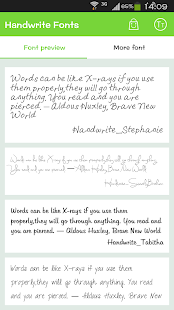 14:09
Handwrite Fonts
Font preview
More font
Words can be like X-rays if you use
them properly,they will go through
anything. You read and you are
pierced. — Aldous Huxley, Brave New
World
Handwrite_Stephanie
Words can be like X-rays if you use them properly,they will go through anything.
You read and you are pierced. — Aldous Huxley, Brave New World
Words can be like X-rays if you use them
properly,they will go through anything. You read and
you are pierced. — Aldous Huxley, Brave New World
Handwrite_Tabitha
Words can be like X-rays if you use them
properly,they will go through anything. You read
and you are pierced. — Aldous Huxley, Brave New